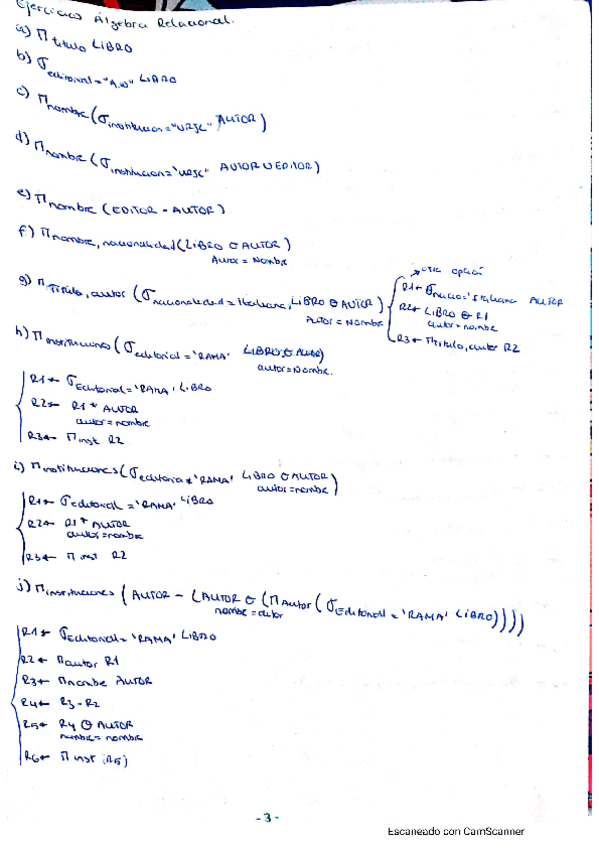 Ejercicios Álgebra Relacional.
a) Π titulo LIBRO
b) σ editorial="A.W" LIBRO
c) Π nombre (σ institucion="URJC" AUTOR)
d) Π nombre (σ institucion='URJC' AUTOR ∪ EDITOR)
e) Π nombre (EDITOR - AUTOR)
f) Π nombre, nacionalidad (LIBRO Θ AUTOR)
Autor = Nombre
→ otra opción
g) Π Titulo, autor (σ nacionalidad = italiana, LIBRO Θ AUTOR)
Autor = Nombre
R1 ← σ nacio='italiana AUTOR
R2 ← LIBRO Θ R1
autor = nombre
R3 ← Π titulo, autor R2
h) Π instituciones (σ editorial = 'RAMA' LIBRO Θ AUTOR)
autor = Nombre.
R1 ← σ Editorial = 'RAMA' LIBRO
R2 ← R1 * AUTOR
autor = nombre
R3 ← Π inst R2
i) Π instituciones (σ editorial ≠ 'RAMA' LIBRO Θ AUTOR)
autor = nombre
R1 ← σ editorial ≠ 'RAMA' LIBRO
R2 ← R1 * AUTOR
autor = nombre
R3 ← Π inst R2
j) Π instituciones (AUTOR - (AUTOR Θ (Π Autor (σ Editorial = 'RAMA' LIBRO))))
nombre = autor
R1 ← σ Editorial = 'RAMA' LIBRO
R2 ← Π autor R1
R3 ← Π nombre AUTOR
R4 ← R3 - R2
R5 ← R4 Θ AUTOR
nombre = nombre
R6 ← Π inst (R5)
- 3 -
Escaneado con CamScanner